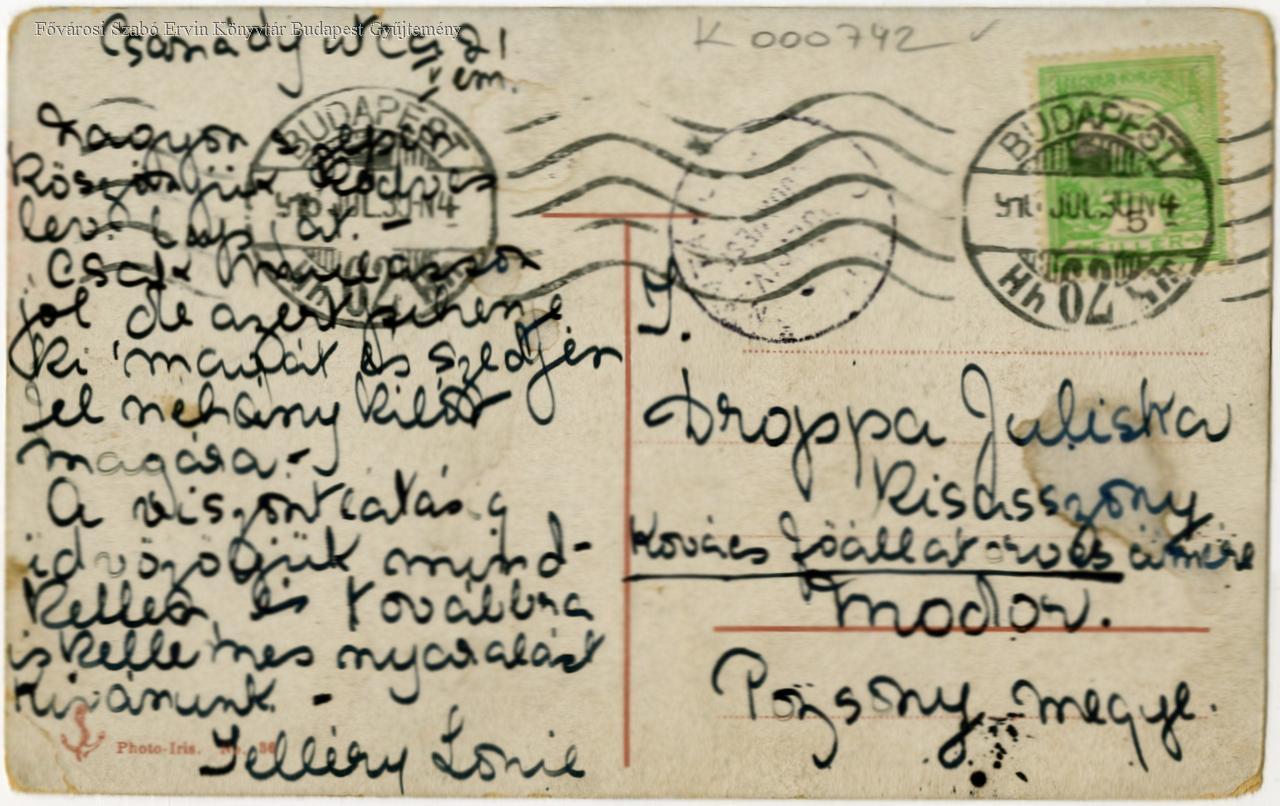 Fővárosi Szabó Ervin Könyvtár Budapest Gyűjtemény
K 000742
Csanády utca 21
V em.
Nagyon szépen
köszönjük kedves
lev. lapját. -
Csak mulasson
jól de azért pihenje
ki magát és szedjen
fel néhány kilót
magára. -
A viszontlátásig
üdvözöljük mind-
ketten és továbbra
is kellemes nyaralást
kívánunk. -
Telléry Lonie
Photo-Iris. No. 36
BUDAPEST
916 JUL 30 N4
70
BUDAPEST
916 JUL 30 N4
70
MAGYAR KIR. POSTA
5
FILLÉR
Droppa Juliska
kisasszony
Kovács főállatorvos címére
Modor.
Pozsony megye.